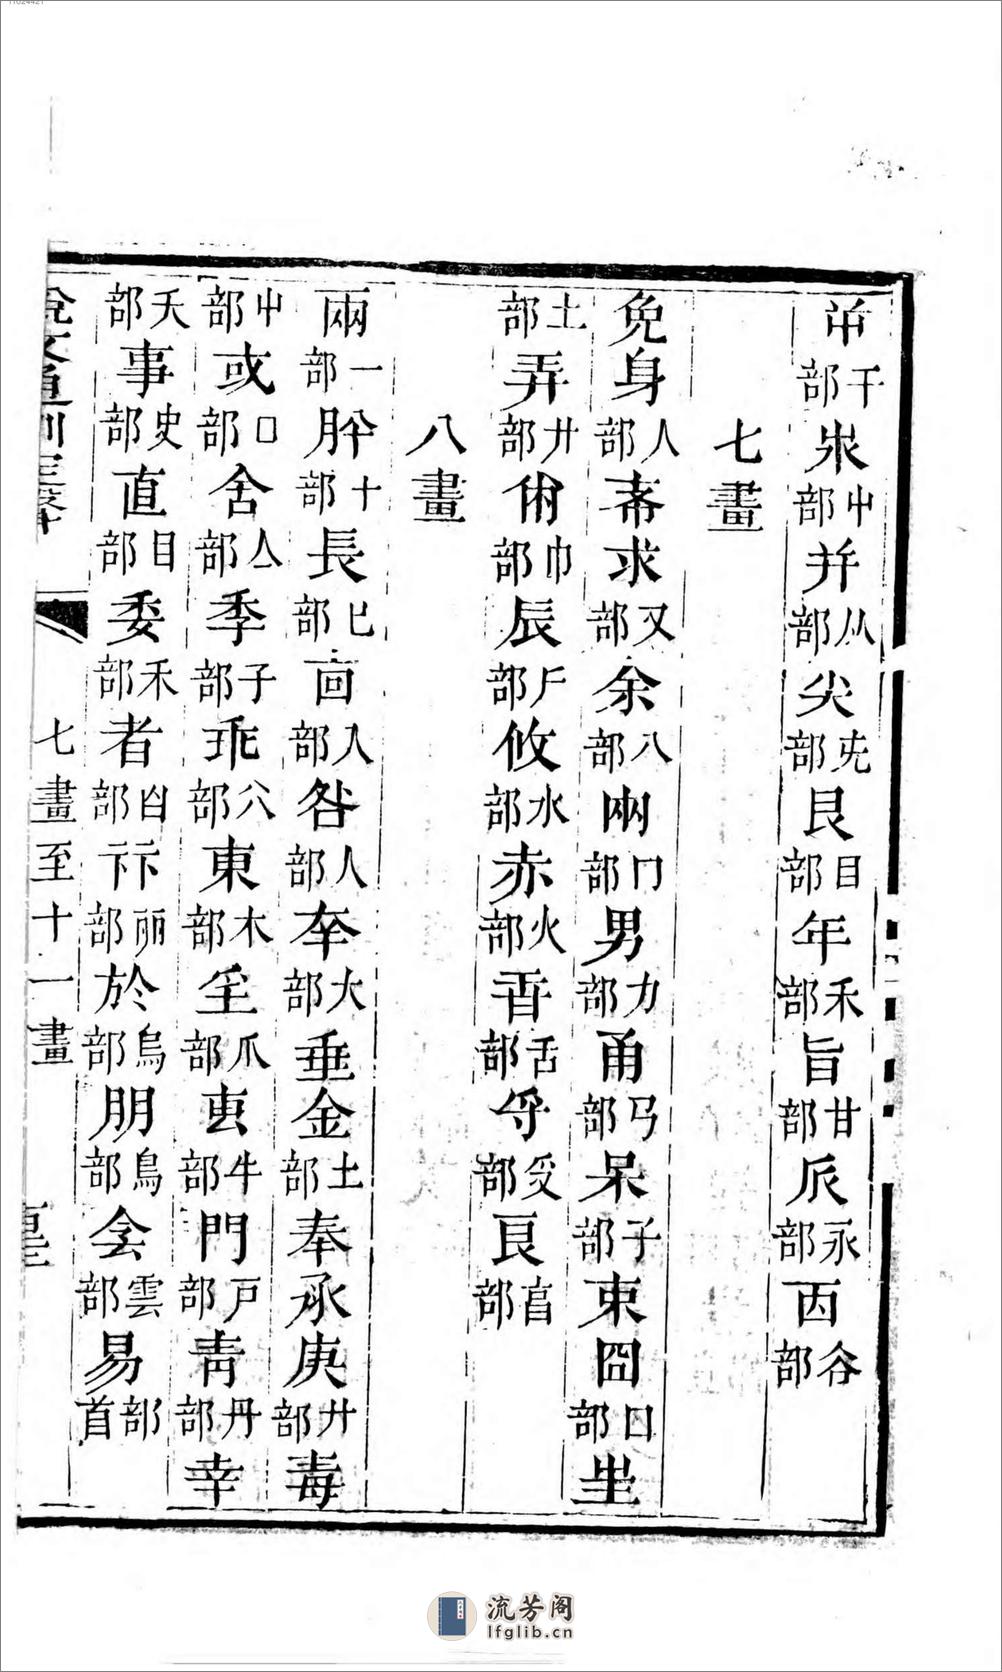 干部 中部 并 从部 尖 部 艮 目部 年 禾部 旨 甘部 𠂢 永部 㐁 谷部
七畫
免身 人部 求 又部 余 八部 㒳 冂部 男 力部 甬 部 呆 子部 束囧 囗部 𡉚
土部 弄 廾部 巾部 辰 戶部 攸 水部 赤 火部 舌部 寽 𠬪部 㫐部
八畫
兩 一部 十部 長 部 㐭 人部 咎 人部 大部 垂金 土部 奉承庚 廾部 毒
屮部 或 囗部 舍 亼部 季 子部 乖 部 東 木部 爪部 叀 牛部 門 戶部 青 丹部 幸
夭部 事 史部 直 目部 委 禾部 者 白部 丽部 於 烏部 朋 鳥部 侌 雲部 易 部首
說文通訓定聲
七畫至十一畫